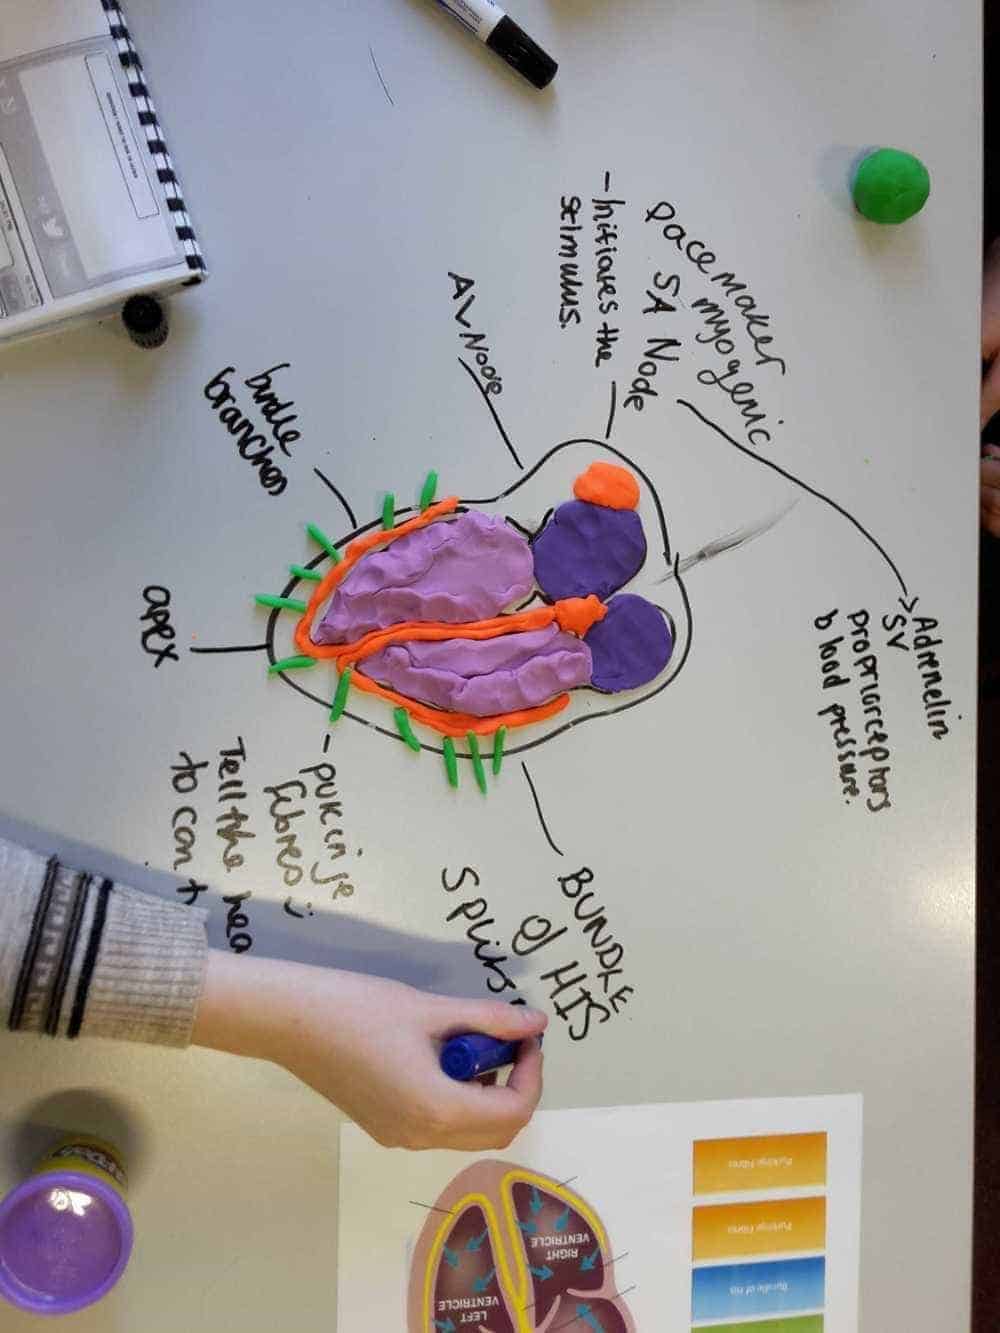 pacemaker
myogenic
SA Node
- Initiates the
stimulus.
AV Node
bundle
branches
apex
Adrenelin
SV
propriorceptors
blood pressure.
BUNDLE
of HIS
Splits
- pukinje
fibres
Tell the hea
to con
Purkinje Fibres
Purkinje Fibres
Bundle of His
RIGHT
VENTRICLE
LEFT
VENTRICLE